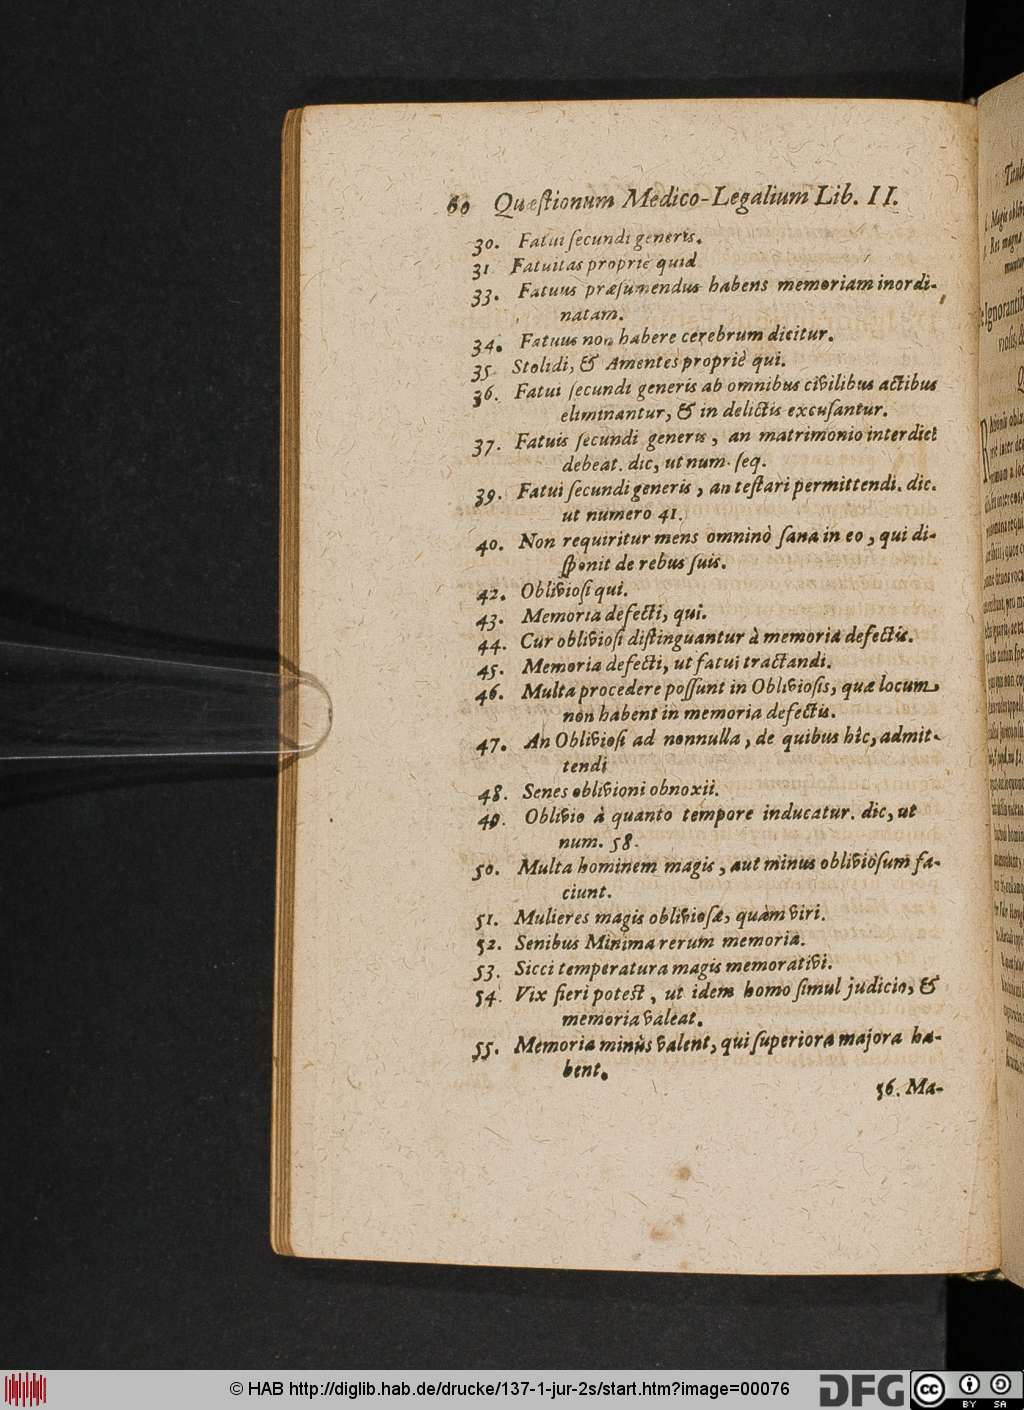 60 Quæſtionum Medico-Legalium Lib. II.
30. Fatui ſecundi generis.
31 Fatuitas propriè quid
33. Fatuus præſumendus habens memoriam inordi-
natam.
34. Fatuus non habere cerebrum dicitur.
35 Stolidi, & Amentes propriè qui.
36. Fatui ſecundi generis ab omnibus civilibus actibus
eliminantur, & in delictis excuſantur.
37. Fatuis ſecundi generis, an matrimonio interdici
debeat. dic, ut num. ſeq.
39. Fatui ſecundi generis, an teſtari permittendi. dic.
ut numero 41.
40. Non requiritur mens omninò ſana in eo, qui di-
ſponit de rebus ſuis.
42. Oblivioſi qui.
43. Memoria defecti, qui.
44. Cur oblivioſi diſtinguantur à memoria defectis.
45. Memoria defecti, ut fatui tractandi.
46. Multa procedere poſſunt in Oblivioſis, quæ locum
non habent in memoria defectis.
47. An Oblivioſi ad nonnulla, de quibus hîc, admit-
tendi
48. Senes oblivioni obnoxii.
49. Oblivio à quanto tempore inducatur. dic, ut
num. 58.
50. Multa hominem magis, aut minus oblivioſum fa-
ciunt.
51. Mulieres magis oblivioſæ, quàm viri.
52. Senibus Minima rerum memoria.
53. Sicci temperatura magis memorativi.
54. Vix fieri poteſt, ut idem homo ſimul judicio, &
memoria valeat.
55. Memoria minùs valent, qui ſuperiora majora ha-
bent.
56. Ma-
© HAB http://diglib.hab.de/drucke/137-1-jur-2s/start.htm?image=00076
DFG
cc BY SA